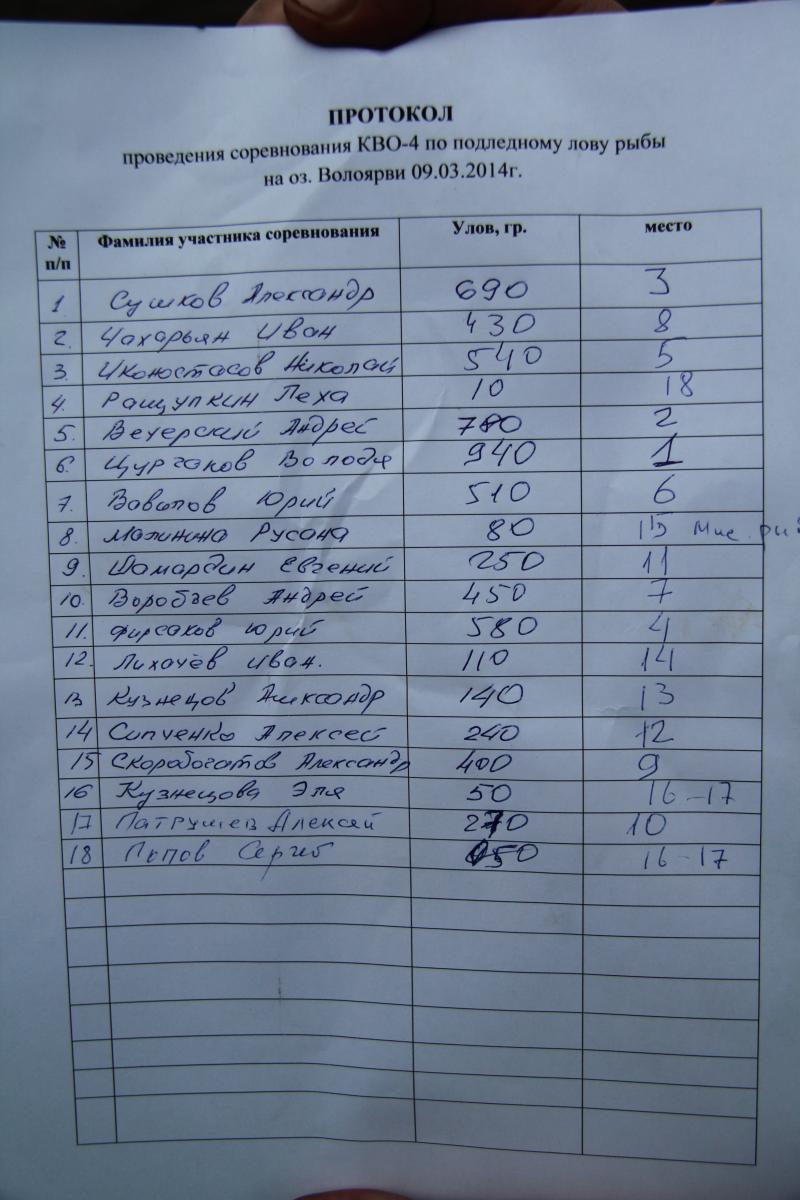 ПРОТОКОЛ
проведения соревнования КВО-4 по подледному лову рыбы
на оз. Волоярви 09.03.2014г.
№ п/п Фамилия участника соревнования Улов, гр. место
1. Сушков Александр 690 3
2. Чахарьян Иван 430 8
3. Иконостасов Николай 540 5
4. Ращупкин Леха 10 18
5. Вечерский Андрей 780 2
6. Цурганов Володя 940 1
7. Вавилов Юрий 510 6
8. Малинина Русана 80 15
9. Шомардин Евгений 250 11
10. Воробьев Андрей 450 7
11. Фирсаков Юрий 580 4
12. Лихачёв Иван. 110 14
13 Кузнецов Александр 140 13
14 Сипченко Алексей 240 12
15 Скоробогатов Александр 400 9
16 Кузнецова Эля 50 16-17
17 Патрушев Алексей 270 10
18 Попов Сергей 50 16-17